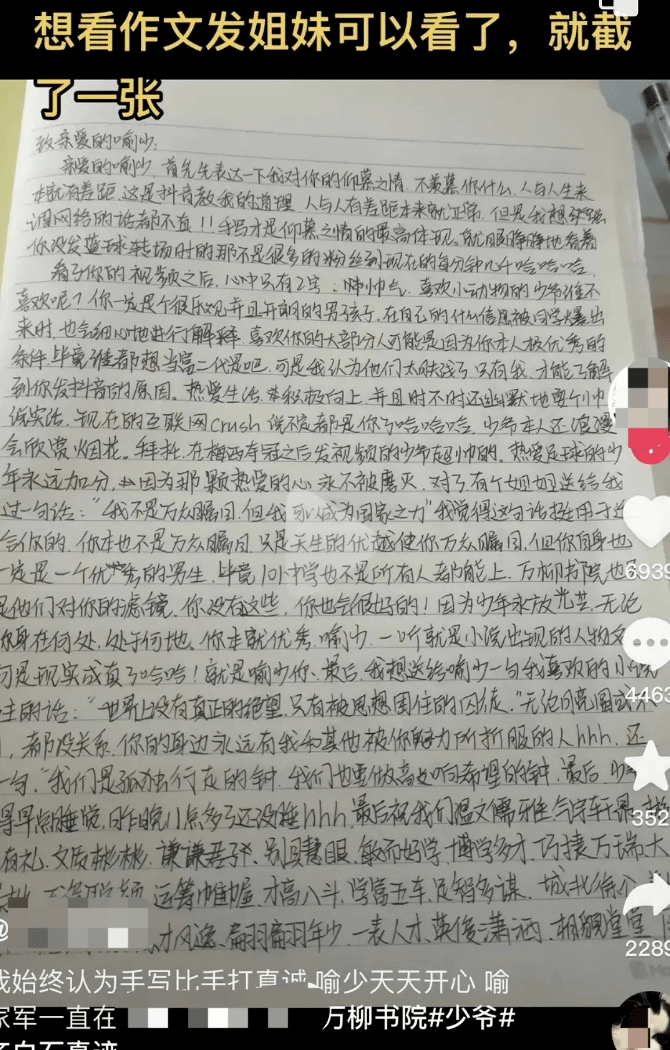 想看作文发姐妹可以看了，就截
了一张
致亲爱的喻少：
亲爱的喻少，首先先表达一下我对你的仰慕之情，不羡慕你什么，人与人生来
本就有差距，这是抖音教我的道理，人与人有差距本来就正常，但是我想
网络的话都不真！！手写才是仰慕之情的最高体现。就
你没发篮球转场时的那不是很多的粉丝到现在的每分钟几千哈哈哈，
看了你的视频之后，心中只有2字：帅，帅气，喜欢小动物的少爷谁不
喜欢呢？你一定是个很乐观并且开朗的男孩子，在自己的什么信息被同学爆出
来时，也会细心地进行解释，喜欢你的大部分人可能是因为你本人极优秀的
条件，毕竟谁都想当富二代是吧，可是我认为他们太肤浅了，只有我，才能了解
到你发抖音的原因。热爱生活，积极向上，并且时不时还幽默地耍个小帅
说实话，现在的互联网crush说不定都是你了哈哈哈，少爷本人还浪漫
会欣赏烟花。拜托，在梅西夺冠之后发视频的少爷超帅的。热爱足球的少
年永远加分，因为那颗热爱的心永不被磨灭，对了有个姐姐送给我
过一句话：“我不是万众瞩目，但我可以成为国家之力”我觉得这句话挺用于
给你的，你本也不是万众瞩目，只是天生的优越使你万众瞩目，但你自身也
一定是一个优秀的男生，毕竟101中学也不是所有人都能上，万柳书院也只
是他们对你的滤镜，你没有这些，你也会很好的！因为少年永放光芒，无论
你身在何处，处于何地。你本就优秀，喻少，一听就是小说出现的人物
可是现实成真了哈哈！就是喻少你、最后，我想送给喻少一句我喜欢的小说
的话：“世界上没有真正的绝望，只有被思想困住的囚徒，”无论月亮圆或不
，都没关系，你的身边永远有我和其他被你魅力所折服的人hhh，还
一句，“我们是孤独行走的钟，我们也要做高处响希望的钟，最后，少爷
得早点睡觉，昨晚11点多了还没睡hhh，最后祝我们温文儒雅，气宇轩昂，
有礼，文质彬彬，谦谦君子，别具慧眼，敏而好学，博学多才，
运筹帷幄，才高八斗，学富五车，足智多谋，城北徐公
翩翩年少，一表人才，英俊潇洒，相貌堂堂
6939
4463
352
2289
@
我始终认为手写比手打真诚 喻少天天开心 喻
家军一直在 万柳书院#少爷#